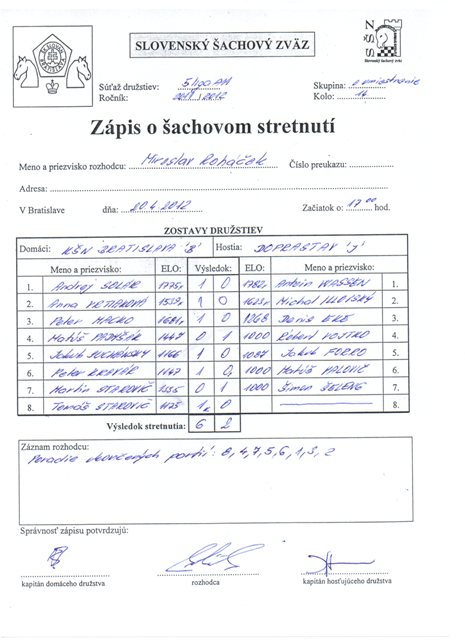 SLOVENSKÝ ŠACHOVÝ ZVÄZ
Slovenský šachový zväz
Súťaž družstiev: 5/100 AM Skupina: o umiestnenie
Ročník: 2011/2012 Kolo: 14
Zápis o šachovom stretnutí
Meno a priezvisko rozhodcu: Miroslav Roháček Číslo preukazu:
Adresa:
V Bratislave dňa: 20.4.2012 Začiatok o 17 00 hod.
ZOSTAVY DRUŽSTIEV
Domáci: KŠN BRATISLAVA 'B' Hostia: DOPRASTAV 'J'
Meno a priezvisko: ELO: Výsledok: ELO: Meno a priezvisko:
1. Andrej 1 0 1782 Antoin 1.
2. Anna 1 0 Michal 2.
3. Peter MACKO 1681 1 0 1268 3.
4. Matúš 1447 0 1 1000 Robert 4.
5. Jakub SUCHÁNSKY 1166 1 0 1087 Jakub 5.
6. Peter KRAVÁR 1147 1 0 1000 Matúš 6.
7. Martin STAROVIČ 0 1 1000 Šimon 7.
8. Tomáš STAROVIČ 1125 1k 0 8.
Výsledok stretnutia: 6 2
Záznam rozhodcu:
Poradie ukončených partií: 8, 4, 7, 5, 6, 1, 3, 2
Správnosť zápisu potvrdzujú:
kapitán domáceho družstva rozhodca kapitán hosťujúceho družstva